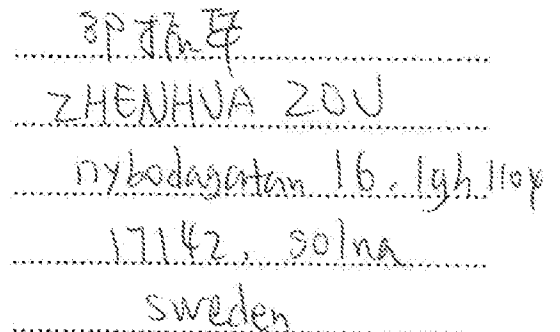 邹振华
ZHENHUA ZOU
nybodagatan 16. lgh
17142, solna
sweden